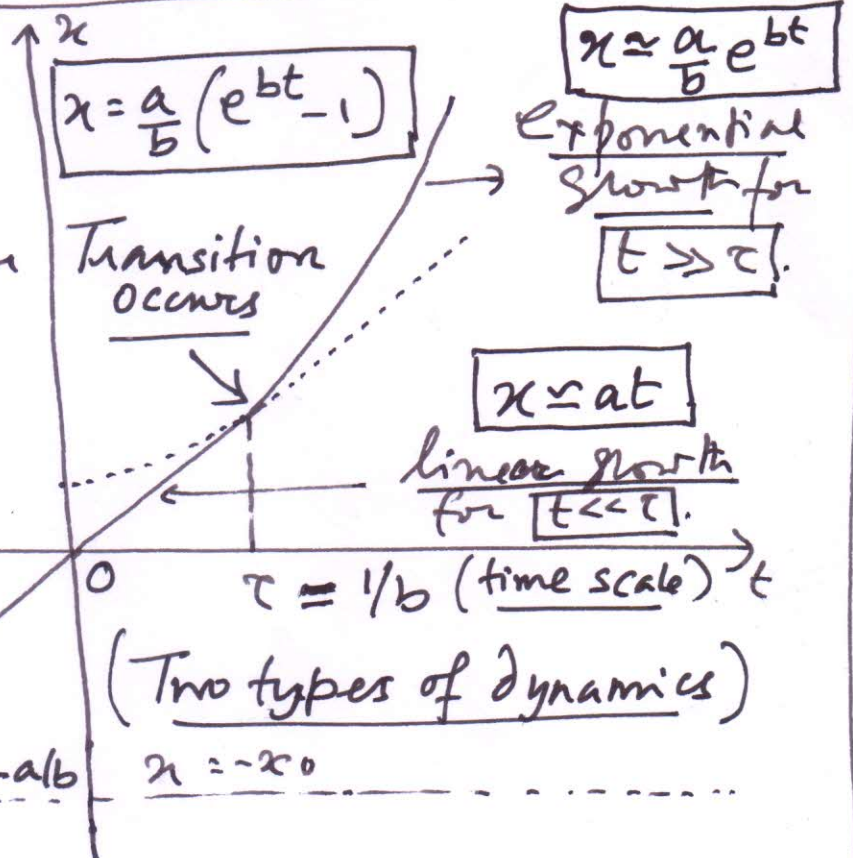 x
x = a/b (e^bt - 1)
x ≃ a/b e^bt
exponential
growth for
t >> τ.
Transition
occurs
x ≃ at
linear growth
for t << τ.
0
τ = 1/b (time scale) t
(Two types of dynamics)
-a/b x = -x0